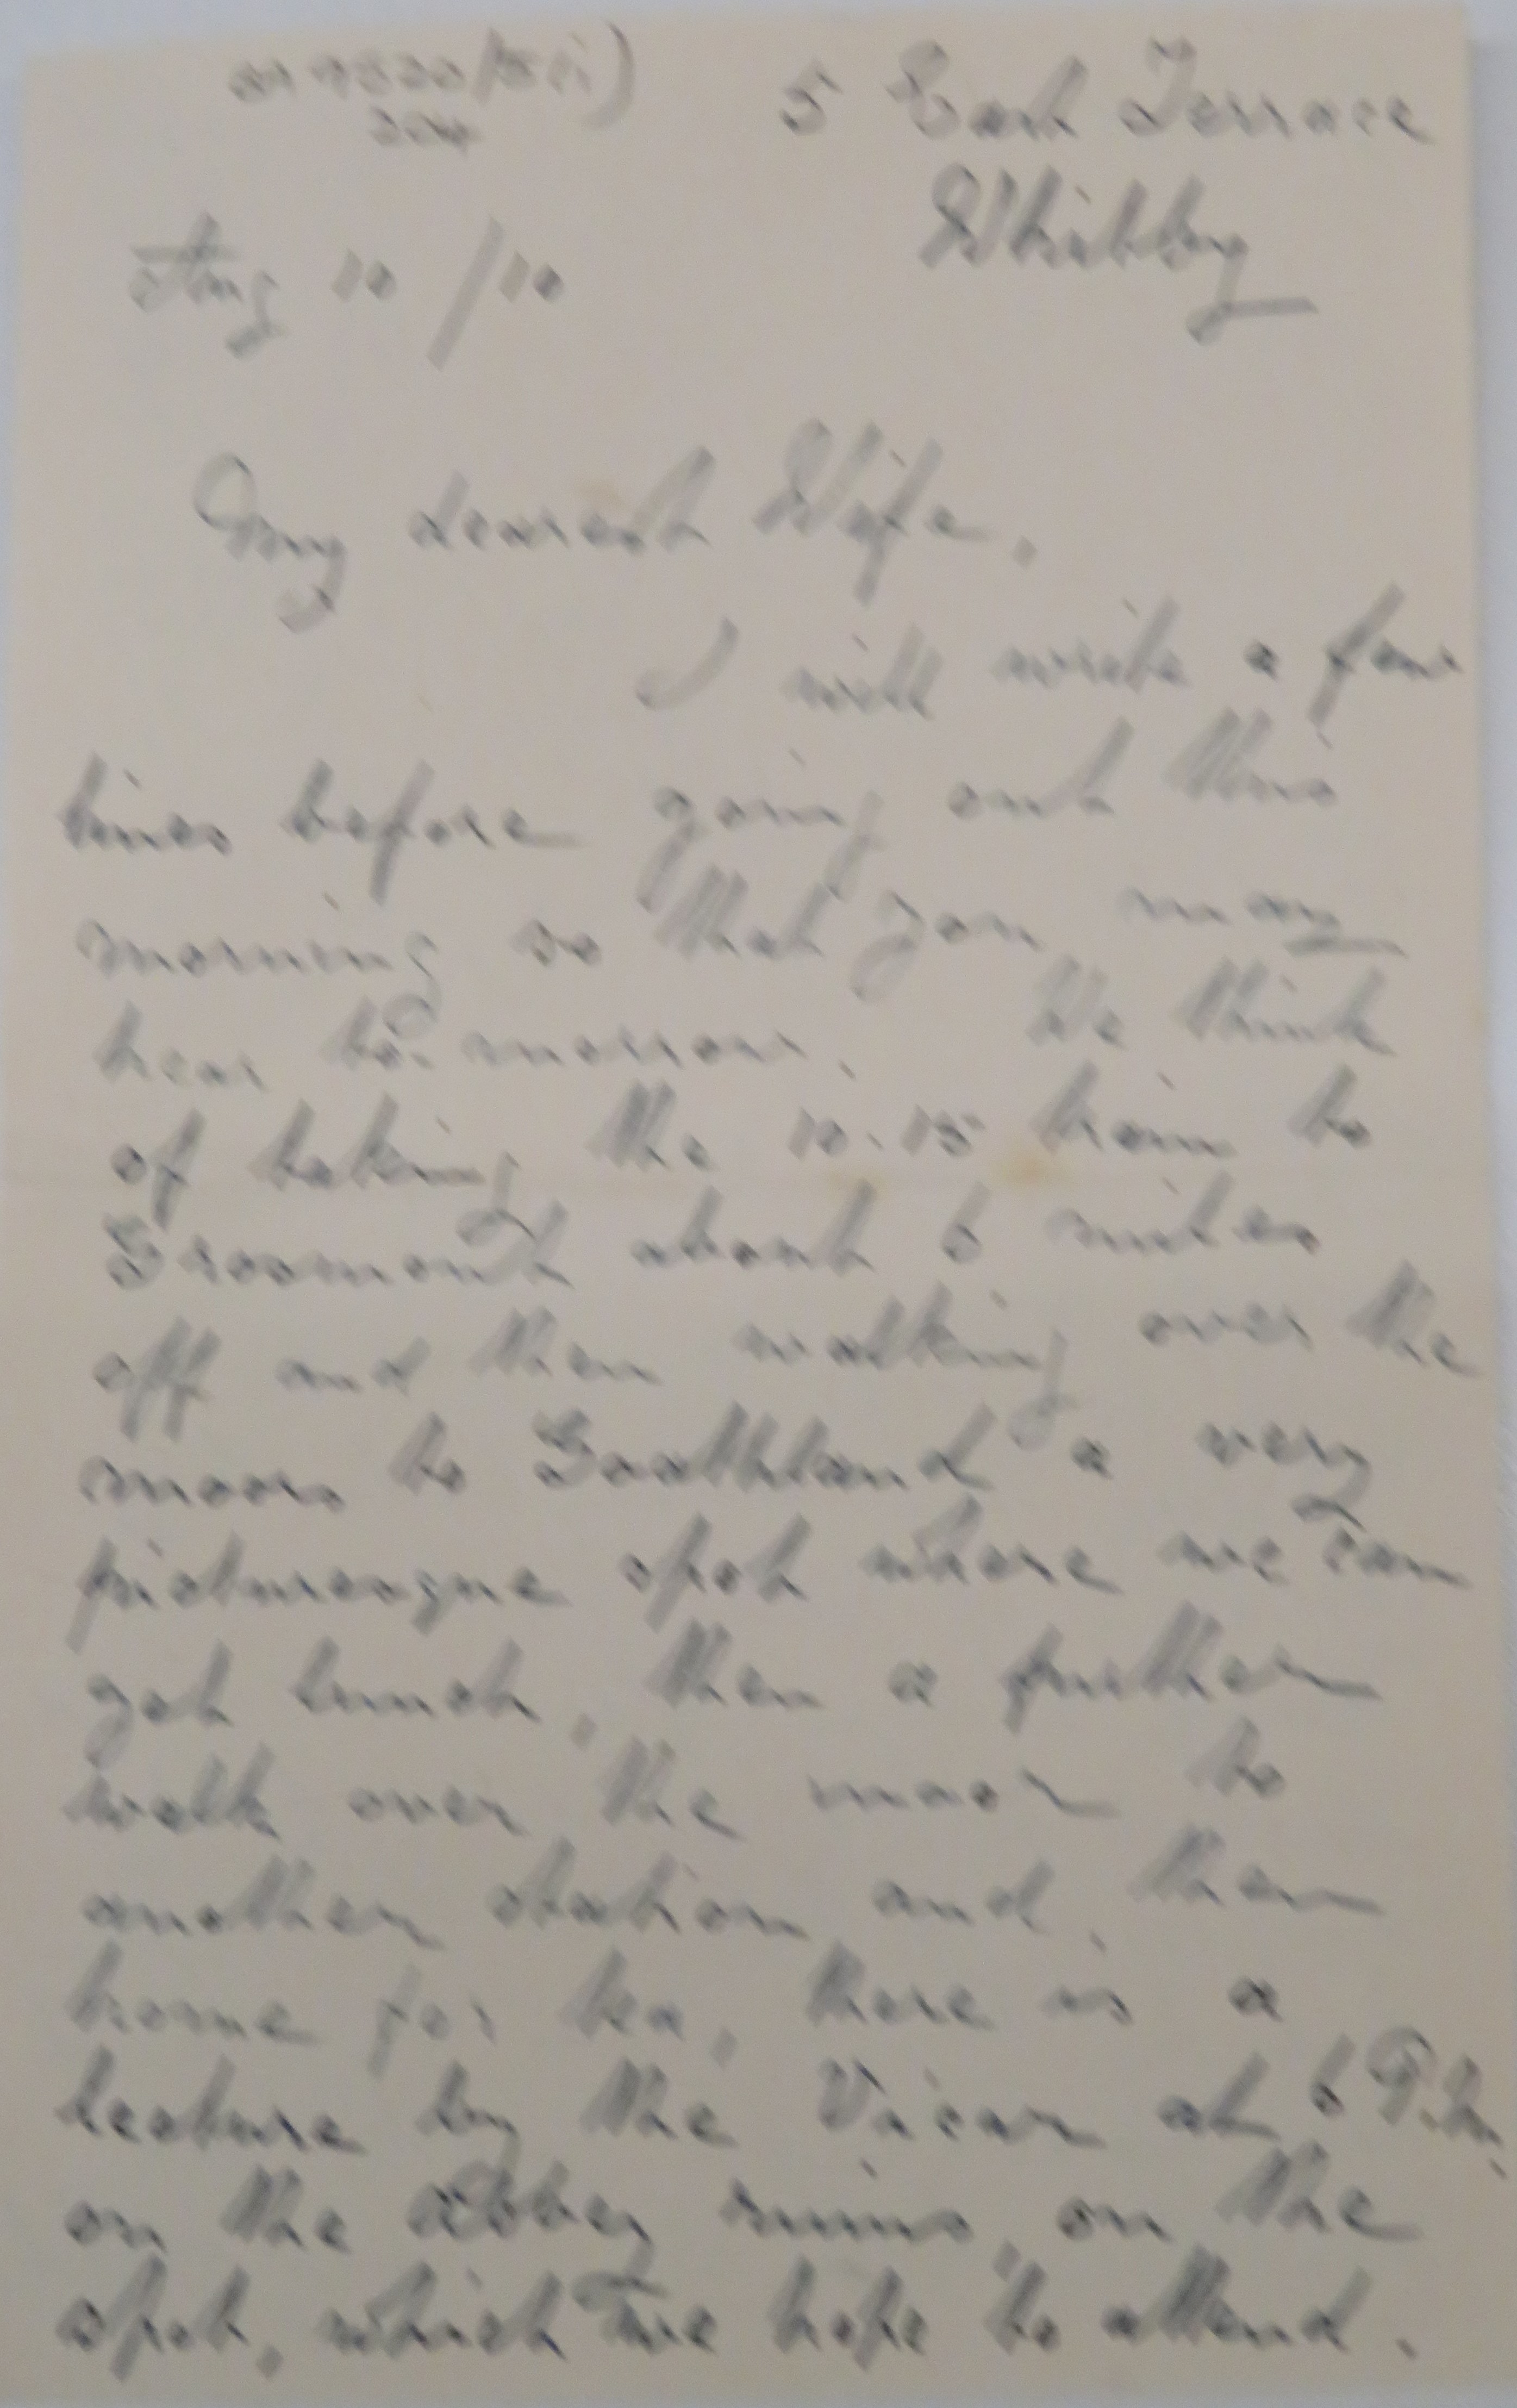 5 East Terrace
Whitby
Aug 10/10
My dearest Wife,
I will write a few
lines before going out this
morning so that you may
hear to-morrow. We think
of taking the 10.15 train to
Grosmont about 6 miles
off and then walking over the
moors to Goathland a very
picturesque spot where we can
get lunch, then a further
walk over the moor to
another station and then
home for tea, there is a
lecture by the Vicar at 6 P.M.
on the Abbey ruins, on the
spot, which we hope to attend.